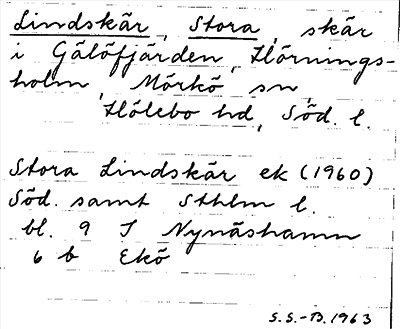 Lindskär, Stora, skär
i Gälöfjärden, Hörnings-
holm, Mörkö sn,
Hölebo hd, Söd. l.
Stora Lindskär ek (1960)
Söd. samt Sthlm l.
bl. 9 I Nynäshamn
6 b Ekö
S.S.-B. 1963